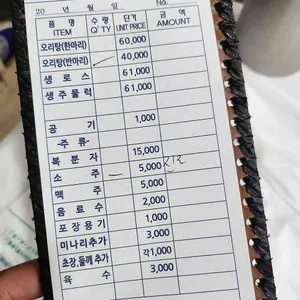 20 년 월 일 No.
품 명 수 량 단가 금 액
ITEM Q'TY UNIT PRICE AMOUNT
오리탕(한마리) 60,000
오리탕(반마리) 40,000
생 로 스 61,000
생 주 물 럭 61,000
공 기 1,000
-주 류-
복 분 자 15,000
소 주 5,000
맥 주 5,000
음 료 수 2,000
포 장 용 기 1,000
미나리추가 3,000
초장,들깨 추가 각1,000
육 수 3,000